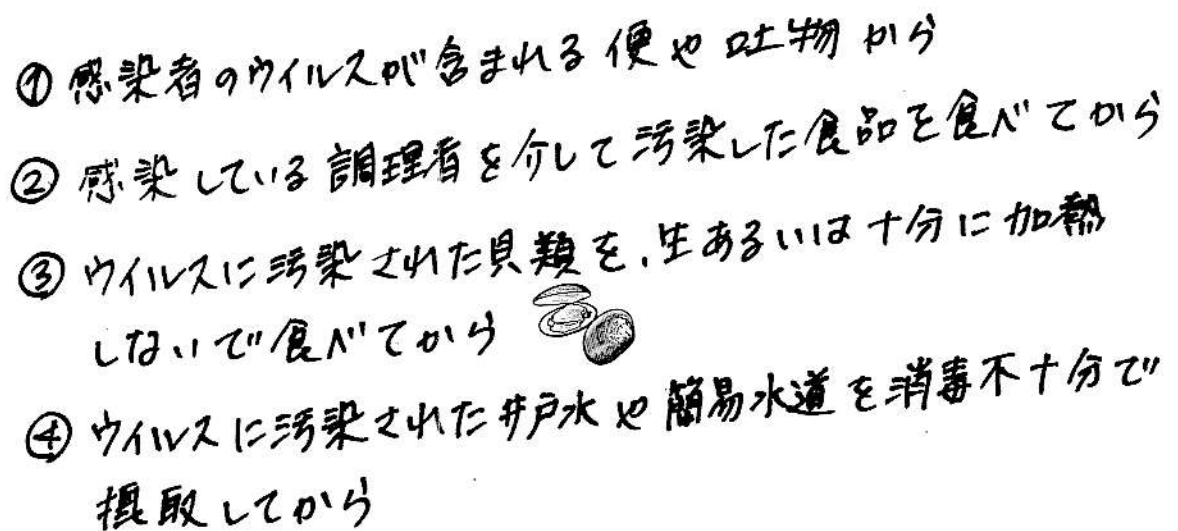 ① 感染者のウイルスが含まれる便や吐物から
② 感染している調理者を介して汚染した食品を食べてから
③ ウイルスに汚染された貝類を、生あるいは十分に加熱
しないで食べてから
④ ウイルスに汚染された井戸水や簡易水道を消毒不十分で
摂取してから